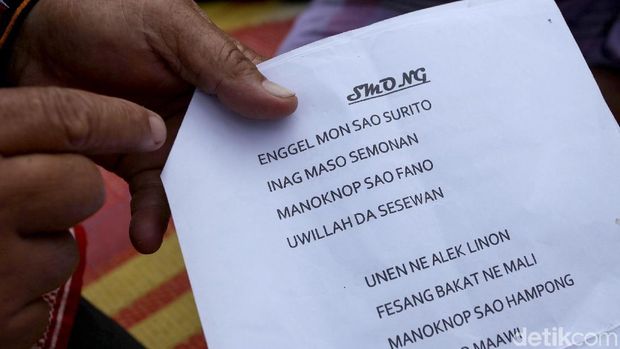 SMONG
ENGGEL MON SAO SURITO
INAG MASO SEMONAN
MANOKNOP SAO FANO
UWILLAH DA SESEWAN
UNEN NE ALEK LINON
FESANG BAKAT NE MALI
MANOKNOP SAO HAMPONG
MAAWI
detikcom